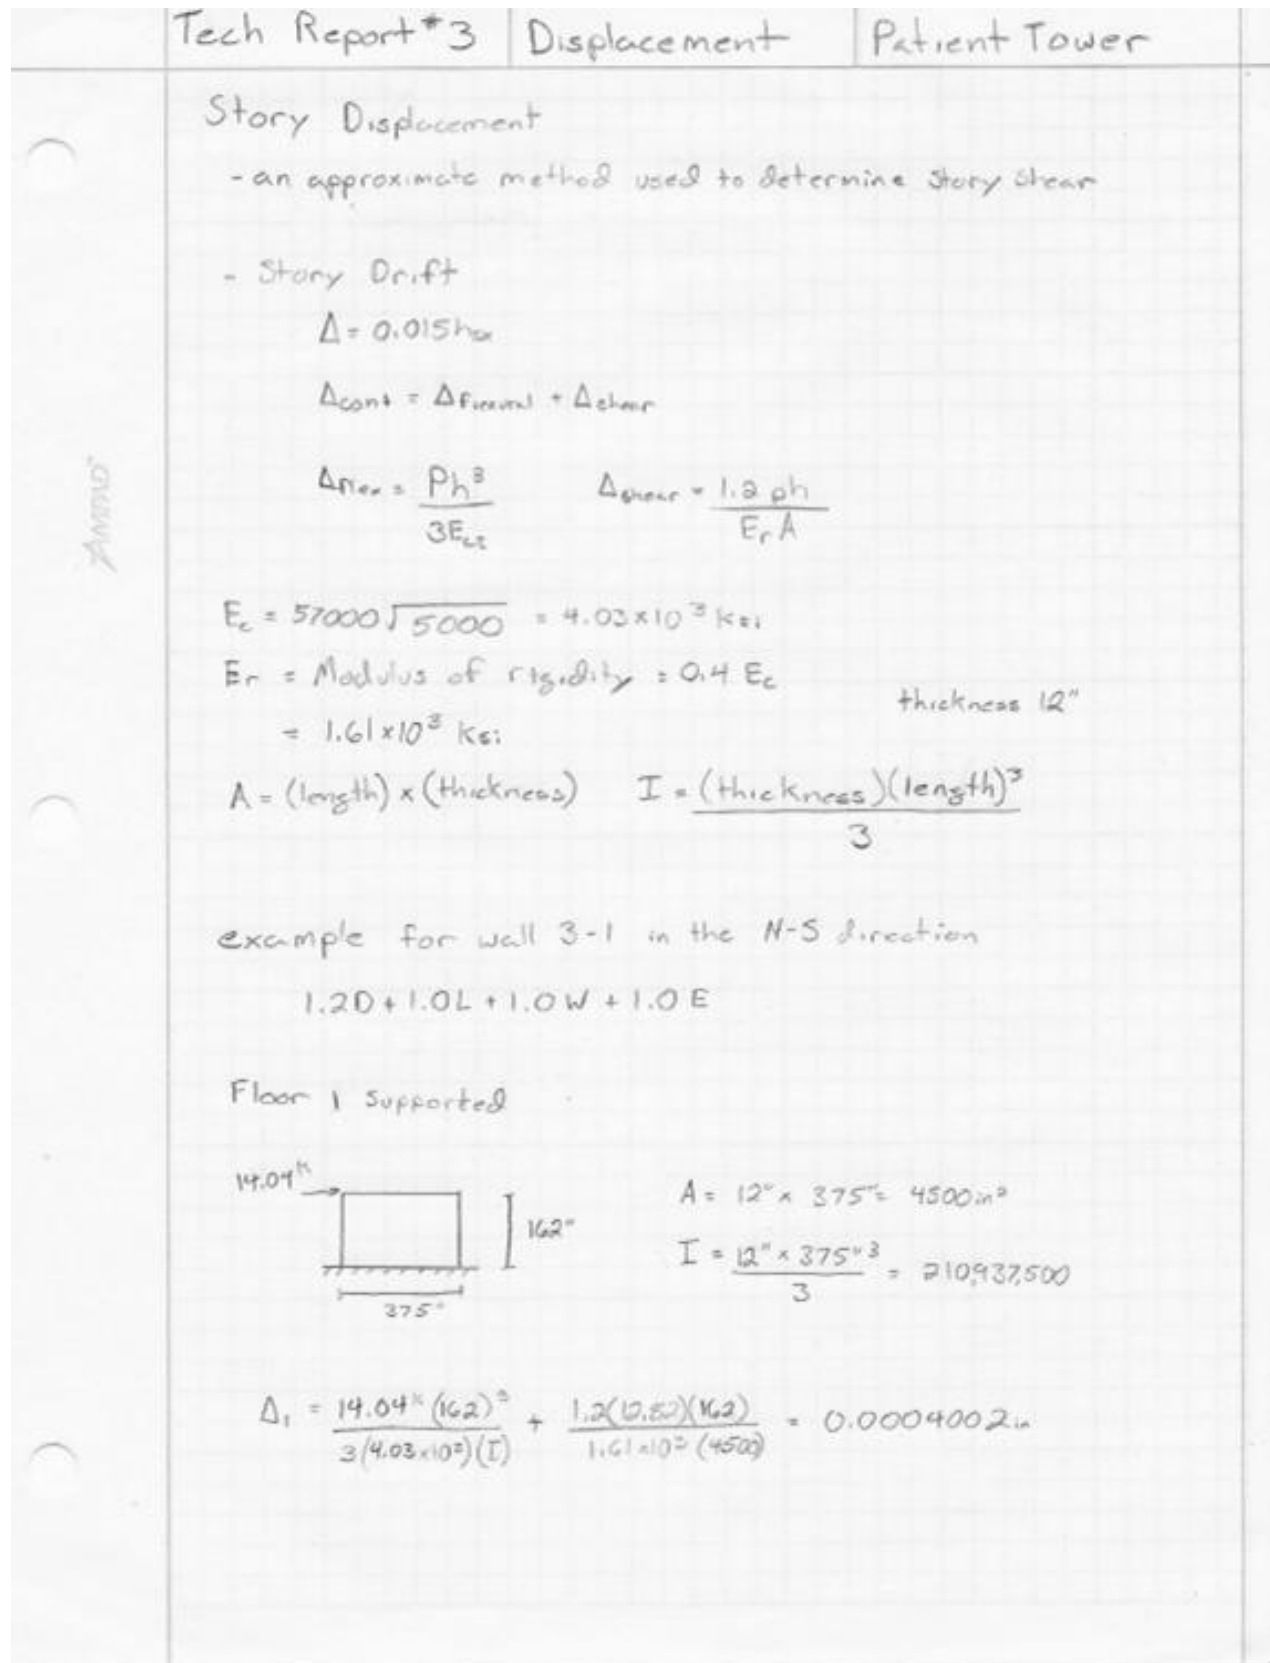 Tech Report #3 Displacement Patient Tower
Story Displacement
- an approximate method used to determine story shear
- Story Drift
Δ = 0.015hsx
Δcont = Δflexural + Δshear
Δflex = Ph³ / 3EcI Δshear = 1.2 ph / Er A
Ec = 57000√5000 = 4.03×10³ ksi
Er = Modulus of rigidity = 0.4 Ec
thickness 12"
= 1.61×10³ ksi
A = (length) × (thickness) I = (thickness)(length)³ / 3
example for wall 3-1 in the N-S direction
1.2D + 1.0L + 1.0W + 1.0E
Floor 1 supported
14.04ᵏ
162"
375"
A = 12" × 375" = 4500in²
I = 12" × 375"³ / 3 = 210,937,500
Δ₁ = 14.04ᵏ (162)³ / 3(4.03×10³)(I) + 1.2()(162) / 1.61×10³ (4500) = 0.0004002in
AMPAD